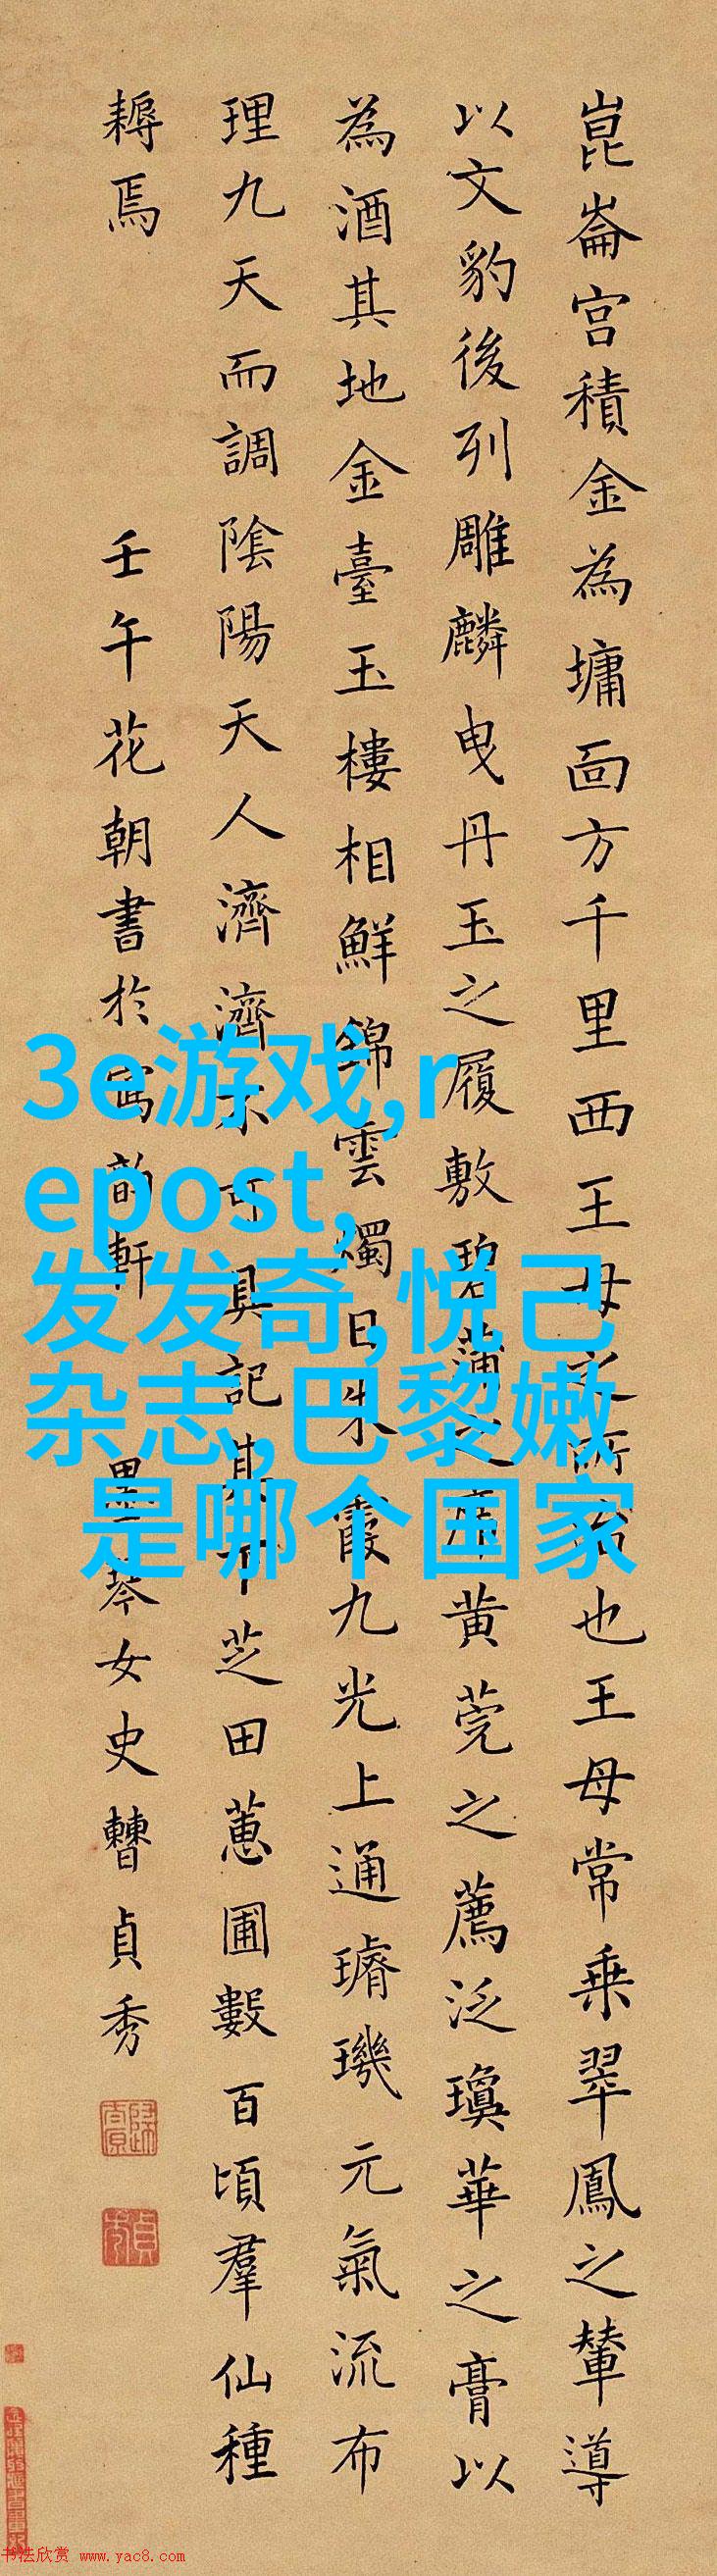 崑崙宮積金為墉面方千里西王母之所治也王母常乘翠鳳之輦導
以文豹後列雕麟曳丹玉之履敷碧蒲之席黄莞之薦泛瓊華之膏以
為酒其地金臺玉樓相鮮錦雲燭日朱霞九光上通璿璣元氣流布
理九天而調陰陽天人濟濟不可具記其下芝田蕙圃數百頃羣仙種
耨焉
壬午花朝書於寫韵軒 墨琴女史曹貞秀
3e游戏,r
epost,
发发奇,悦己
杂志,巴黎嫩
是哪个国家
书法欣赏 www.yac8.com